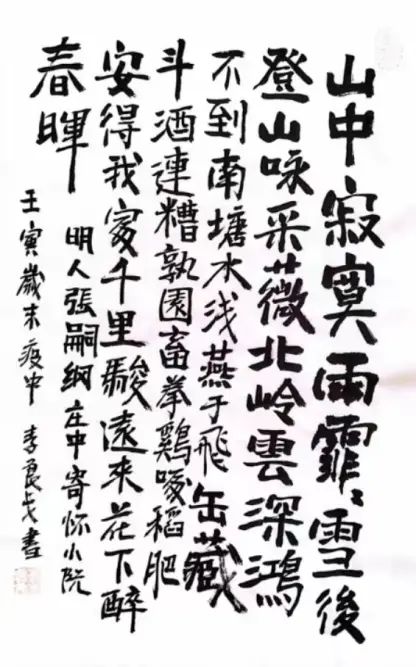 山中寂寞雨霏霏雪後
登山咏采薇北岭雲深鴻
不到南塘水浅燕于飛缶藏
斗酒連糟孰園畜拳鷄啄稻肥
安得我家千里駿遠來花下醉
春暉
明人張嗣纲庄中寄怀小阮
壬寅歲末疫中 李良戈書